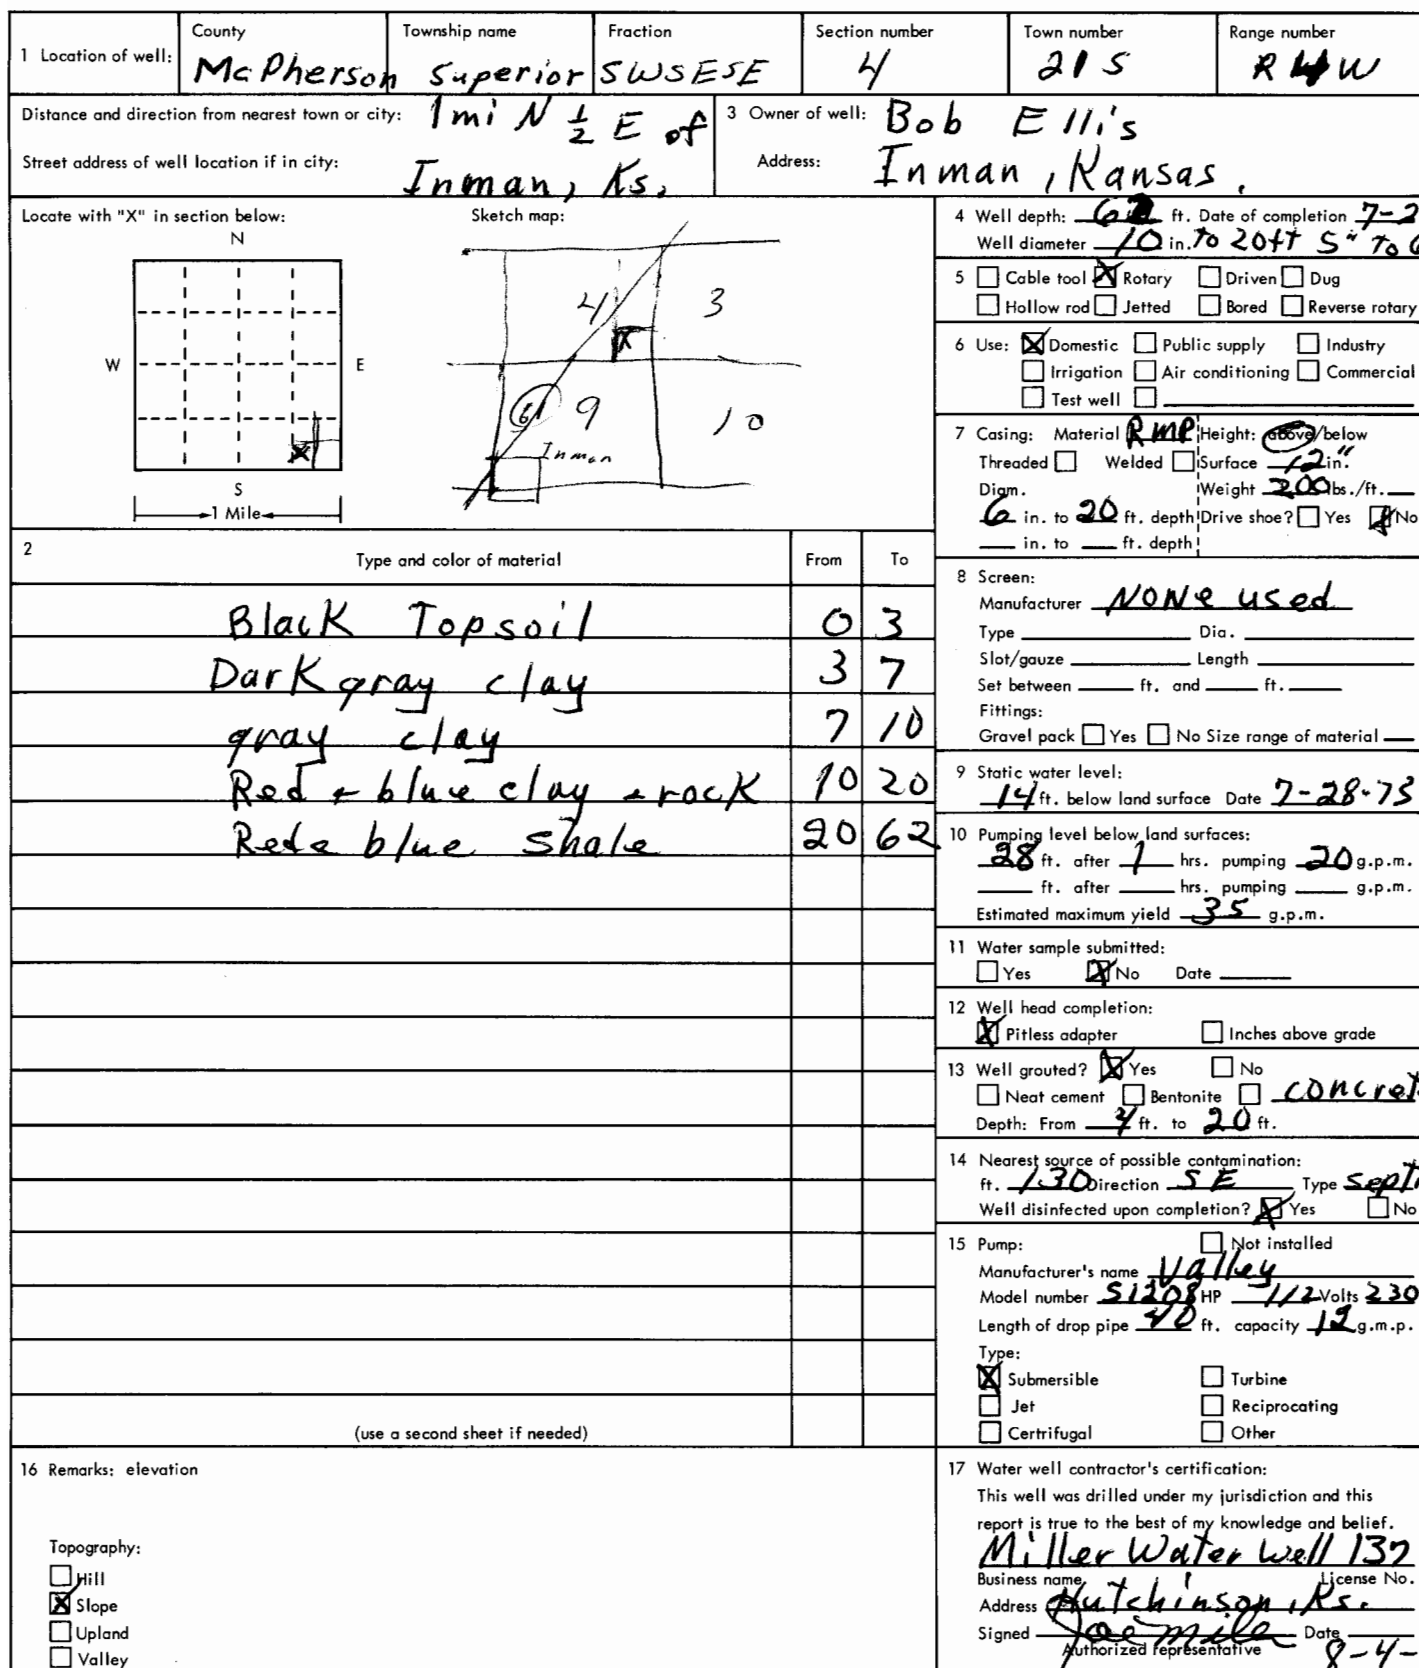 1 Location of well: County Township name Fraction Section number Town number Range number
McPherson Superior SWSESE 4 21 S R 4 W
Distance and direction from nearest town or city: 1 mi N ½ E of
Street address of well location if in city: Inman, Ks.
3 Owner of well: Bob Ellis
Address: Inman, Kansas.
Locate with "X" in section below:
N
W E
X
S
1 Mile
Sketch map:
4 3
X
61 9 10
Inman
2 Type and color of material From To
Black Topsoil 0 3
Dark gray clay 3 7
gray clay 7 10
Red + blue clay + rock 10 20
Red + blue shale 20 62
(use a second sheet if needed)
4 Well depth: 62 ft. Date of completion 7-2
Well diameter 10 in. to 20 ft 5" to 6
5 Cable tool X Rotary Driven Dug
Hollow rod Jetted Bored Reverse rotary
6 Use: X Domestic Public supply Industry
Irrigation Air conditioning Commercial
Test well
7 Casing: Material RMP Height: above/below
Threaded Welded Surface 12 in."
Diam. Weight 200 lbs./ft.
6 in. to 20 ft. depth Drive shoe? Yes X No
in. to ft. depth
8 Screen:
Manufacturer NONe used
Type Dia.
Slot/gauze Length
Set between ft. and ft.
Fittings:
Gravel pack Yes No Size range of material
9 Static water level:
14 ft. below land surface Date 7-28-73
10 Pumping level below land surfaces:
28 ft. after 1 hrs. pumping 20 g.p.m.
ft. after hrs. pumping g.p.m.
Estimated maximum yield 35 g.p.m.
11 Water sample submitted:
Yes X No Date
12 Well head completion:
X Pitless adapter Inches above grade
13 Well grouted? X Yes No
Neat cement Bentonite concret
Depth: From 4 ft. to 20 ft.
14 Nearest source of possible contamination:
ft. 130 Direction SE Type septi
Well disinfected upon completion? X Yes No
15 Pump: Not installed
Manufacturer's name Valley
Model number S1208 HP 1/2 Volts 230
Length of drop pipe 40 ft. capacity 12 g.m.p.
Type:
X Submersible Turbine
Jet Reciprocating
Certrifugal Other
16 Remarks: elevation
Topography:
Hill
X Slope
Upland
Valley
17 Water well contractor's certification:
This well was drilled under my jurisdiction and this
report is true to the best of my knowledge and belief.
Miller Water Well 137
Business name License No.
Address Hutchinson, Ks.
Signed Joe Miller Date 8-4-
Authorized representative